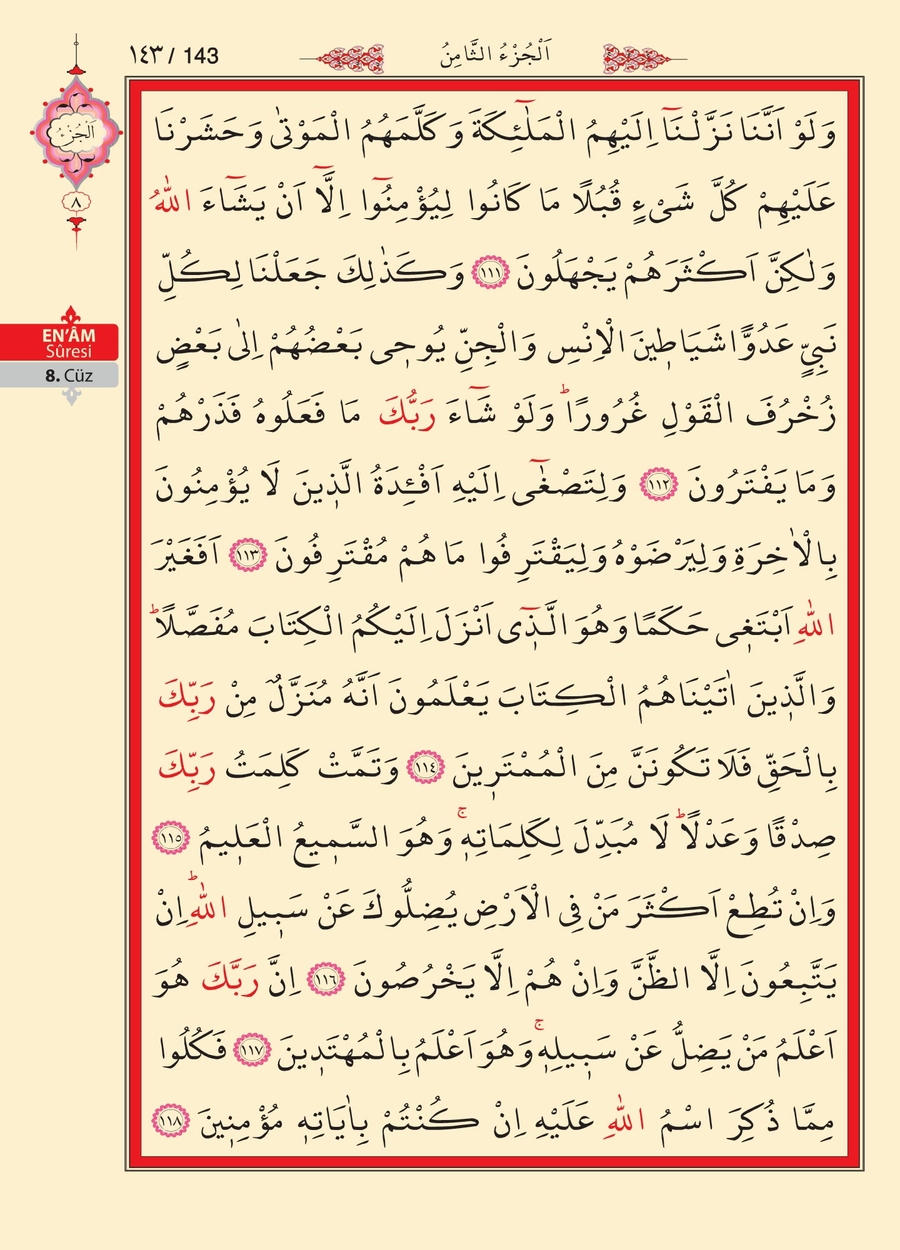 ١٤٣ / 143
اَلْجُزْءُ الثَّامِنُ
اَلْجُزْءُ
٨
EN'ÂM
Sûresi
8. Cüz
وَلَوْ اَنَّنَا نَزَّلْنَٓا اِلَيْهِمُ الْمَلٰٓئِكَةَ وَكَلَّمَهُمُ الْمَوْتٰى وَحَشَرْنَا
عَلَيْهِمْ كُلَّ شَىْءٍ قُبُلًا مَا كَانُوا لِيُؤْمِنُٓوا اِلَّٓا اَنْ يَشَٓاءَ اللّٰهُ
وَلٰكِنَّ اَكْثَرَهُمْ يَجْهَلُونَ ﴿١١١﴾ وَكَذٰلِكَ جَعَلْنَا لِكُلِّ
نَبِيٍّ عَدُوًّا شَيَاط۪ينَ الْاِنْسِ وَالْجِنِّ يُوح۪ى بَعْضُهُمْ اِلٰى بَعْضٍ
زُخْرُفَ الْقَوْلِ غُرُورًاۜ وَلَوْ شَٓاءَ رَبُّكَ مَا فَعَلُوهُ فَذَرْهُمْ
وَمَا يَفْتَرُونَ ﴿١١٢﴾ وَلِتَصْغٰٓى اِلَيْهِ اَفْـِٔدَةُ الَّذ۪ينَ لَا يُؤْمِنُونَ
بِالْاٰخِرَةِ وَلِيَرْضَوْهُ وَلِيَقْتَرِفُوا مَا هُمْ مُقْتَرِفُونَ ﴿١١٣﴾ اَفَغَيْرَ
اللّٰهِ اَبْتَغ۪ى حَكَمًا وَهُوَ الَّذ۪ٓى اَنْزَلَ اِلَيْكُمُ الْكِتَابَ مُفَصَّلًاۜ
وَالَّذ۪ينَ اٰتَيْنَاهُمُ الْكِتَابَ يَعْلَمُونَ اَنَّهُ مُنَزَّلٌ مِنْ رَبِّكَ
بِالْحَقِّ فَلَا تَكُونَنَّ مِنَ الْمُمْتَر۪ينَ ﴿١١٤﴾ وَتَمَّتْ كَلِمَتُ رَبِّكَ
صِدْقًا وَعَدْلًاۜ لَا مُبَدِّلَ لِكَلِمَاتِه۪ۚ وَهُوَ السَّم۪يعُ الْعَل۪يمُ ﴿١١٥﴾
وَاِنْ تُطِعْ اَكْثَرَ مَنْ فِى الْاَرْضِ يُضِلُّوكَ عَنْ سَب۪يلِ اللّٰهِۜ اِنْ
يَتَّبِعُونَ اِلَّا الظَّنَّ وَاِنْ هُمْ اِلَّا يَخْرُصُونَ ﴿١١٦﴾ اِنَّ رَبَّكَ هُوَ
اَعْلَمُ مَنْ يَضِلُّ عَنْ سَب۪يلِه۪ۚ وَهُوَ اَعْلَمُ بِالْمُهْتَد۪ينَ ﴿١١٧﴾ فَكُلُوا
مِمَّا ذُكِرَ اسْمُ اللّٰهِ عَلَيْهِ اِنْ كُنْتُمْ بِاٰيَاتِه۪ مُؤْمِن۪ينَ ﴿١١٨﴾